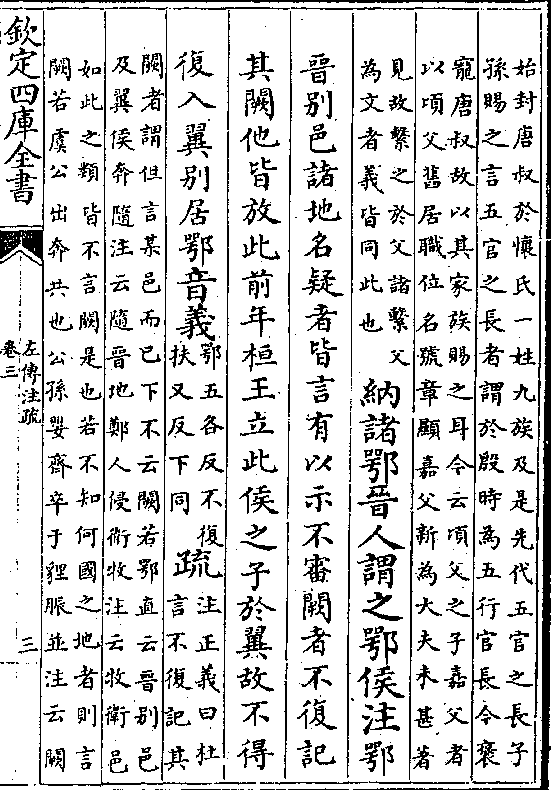 始封唐叔於懷氏一姓九族及是先代五官之長子
孫賜之言五官之長者謂於殷時為五行官長今褒
寵唐叔故以其家族賜之耳今云頃父之子嘉父者
以頃父舊居職位名號章顯嘉父新為大夫未甚著
見故繫之於父諸繫父
為文者義皆同此也
納諸鄂晉人謂之鄂侯注鄂
晉別邑諸地名疑者皆言有以示不審闕者不復記
其闕他皆放此前年桓王立此侯之子於翼故不得
復入翼別居鄂音義
鄂五各反不復
扶又反下同
疏
注正義曰杜
言不復記其
闕者謂但言某邑而已下不云闕若鄂直云晉別邑
及翼侯奔隨注云隨晉地鄭人侵衛牧注云牧衛邑
如此之類皆不言闕是也若不知何國之地者則言
闕若虞公出奔共也公孫嬰齊卒于貍脤並注云闕
欽定四庫全書
左傳注疏
卷三
三